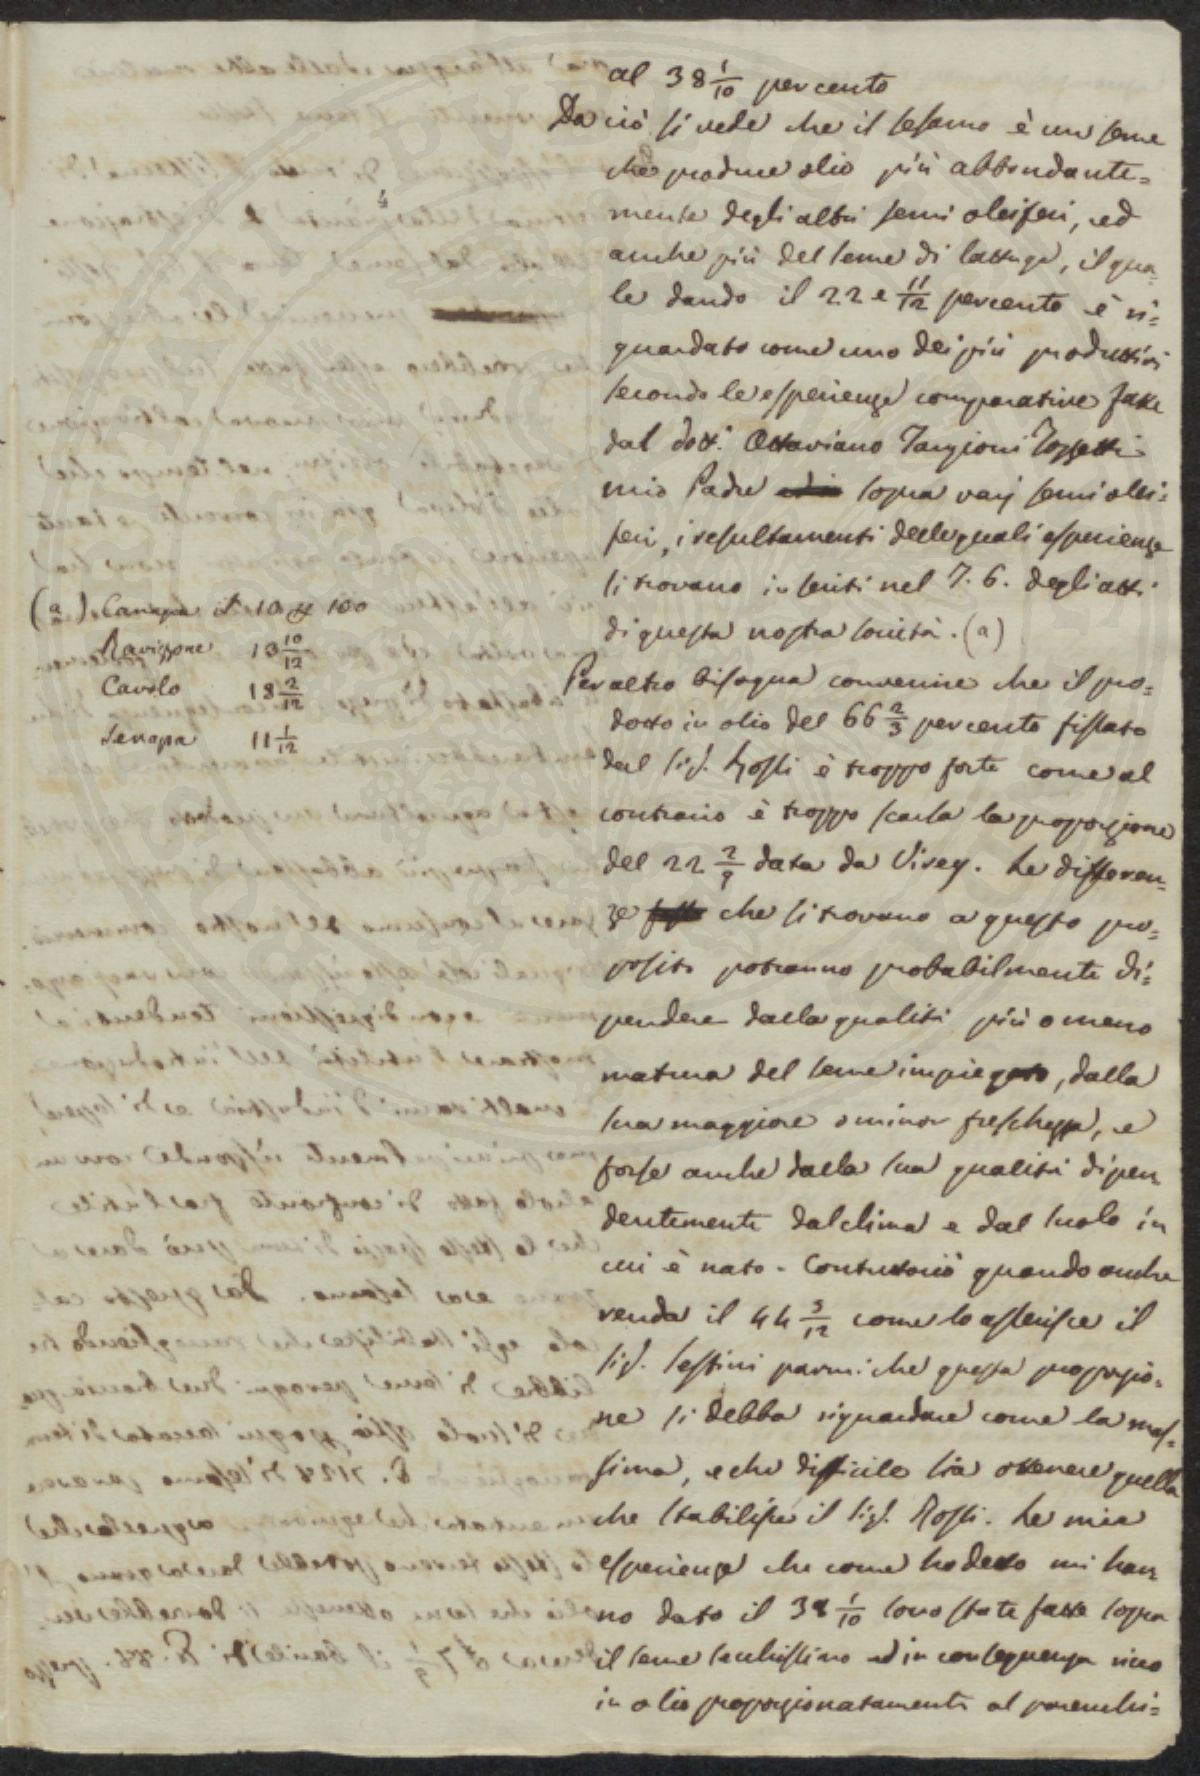 al 38 1/10 per cento
Da ciò si vede che il sesamo è un seme
che produce olio più abbondante=
mente degli altri semi oleiferi, ed
anche più del seme di lattuga, il qua=
le dando il 22 e 11/12 per cento è ri=
guardato come uno dei più produttivi
secondo le esperienze comparative fatte
dal Dott. Ottaviano Targioni Tozzetti
mio Padre sopra varj semi olei=
feri, i resultamenti delle quali esperienze
si trovano inseriti nel T. 6. degli atti
di questa nostra società. (a)
(a) Canapa il 10 p 100
Ravizzone 13 10/12
Cavolo 18 2/12
Senapa 11 1/12
Per altro bisogna convenire che il pro=
dotto in olio del 66 2/3 per cento fissato
dal Sig. Rossi è troppo forte come al
contrario è troppo scarsa la proporzione
del 22 2/9 data da Virey. Le differen=
ze che si trovano a questo pro=
posito potranno probabilmente di=
pendere dalla qualità più o meno
matura del seme impiegato, dalla
sua maggiore o minor freschezza, e
forse anche dalla sua qualità dipen
dentemente dal clima e dal suolo in
cui è nato. Contuttociò quando anche
renda il 44 5/12 come lo asserisce il
Sig. Sestini parmi che questa proporzio=
ne si debba riguardare come la mas=
sima, e che difficile sia ottenere quella
che stabilisce il Sig. Rossi. Le mie
esperienze che come ho detto mi han
no dato il 38 1/10 sono state fatte sopra
il seme secchissimo ed in conseguenza ricco
in olio proporzionatamente al parenchi=